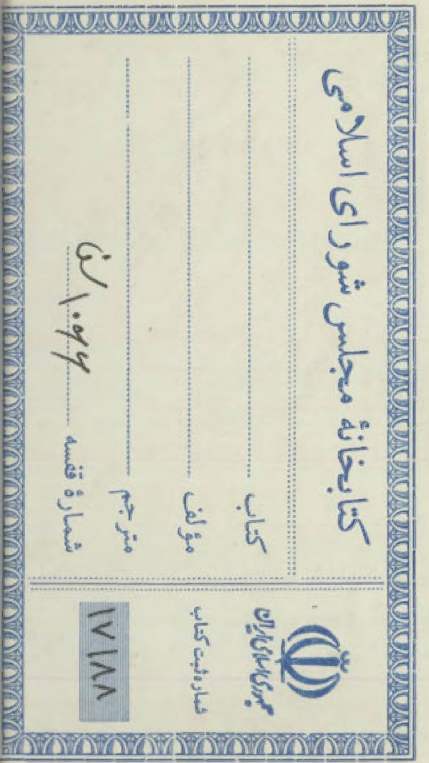 کتابخانهٔ مجلس شورای اسلامی
کتاب
مؤلف
مترجم
شمارهٔ قفسه ۱۰۶۶
جمهوری اسلامی ایران
شماره ثبت کتاب
۱۷۱۸۸